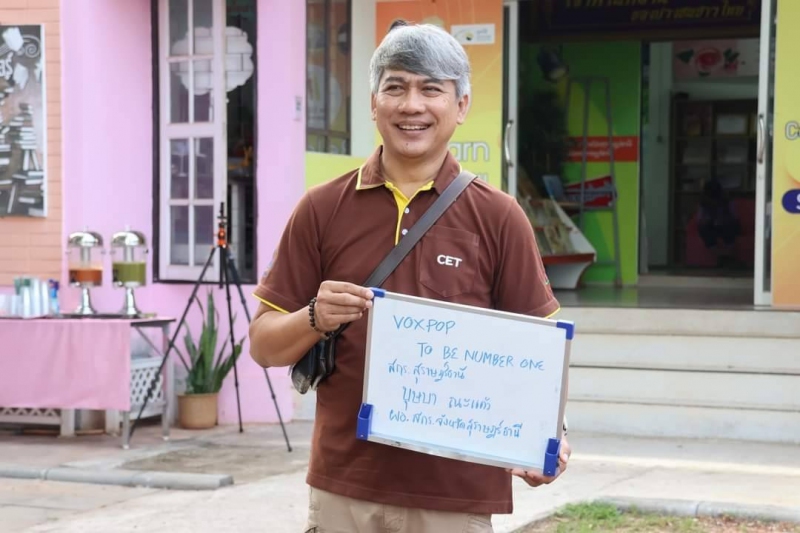 CET
VOXPOP
TO BE NUMBER ONE
สกร. สุราษฎร์ธานี
บุษบา ณะแก้ว
ผอ. สกร. จังหวัดสุราษฎร์ธานี
arn